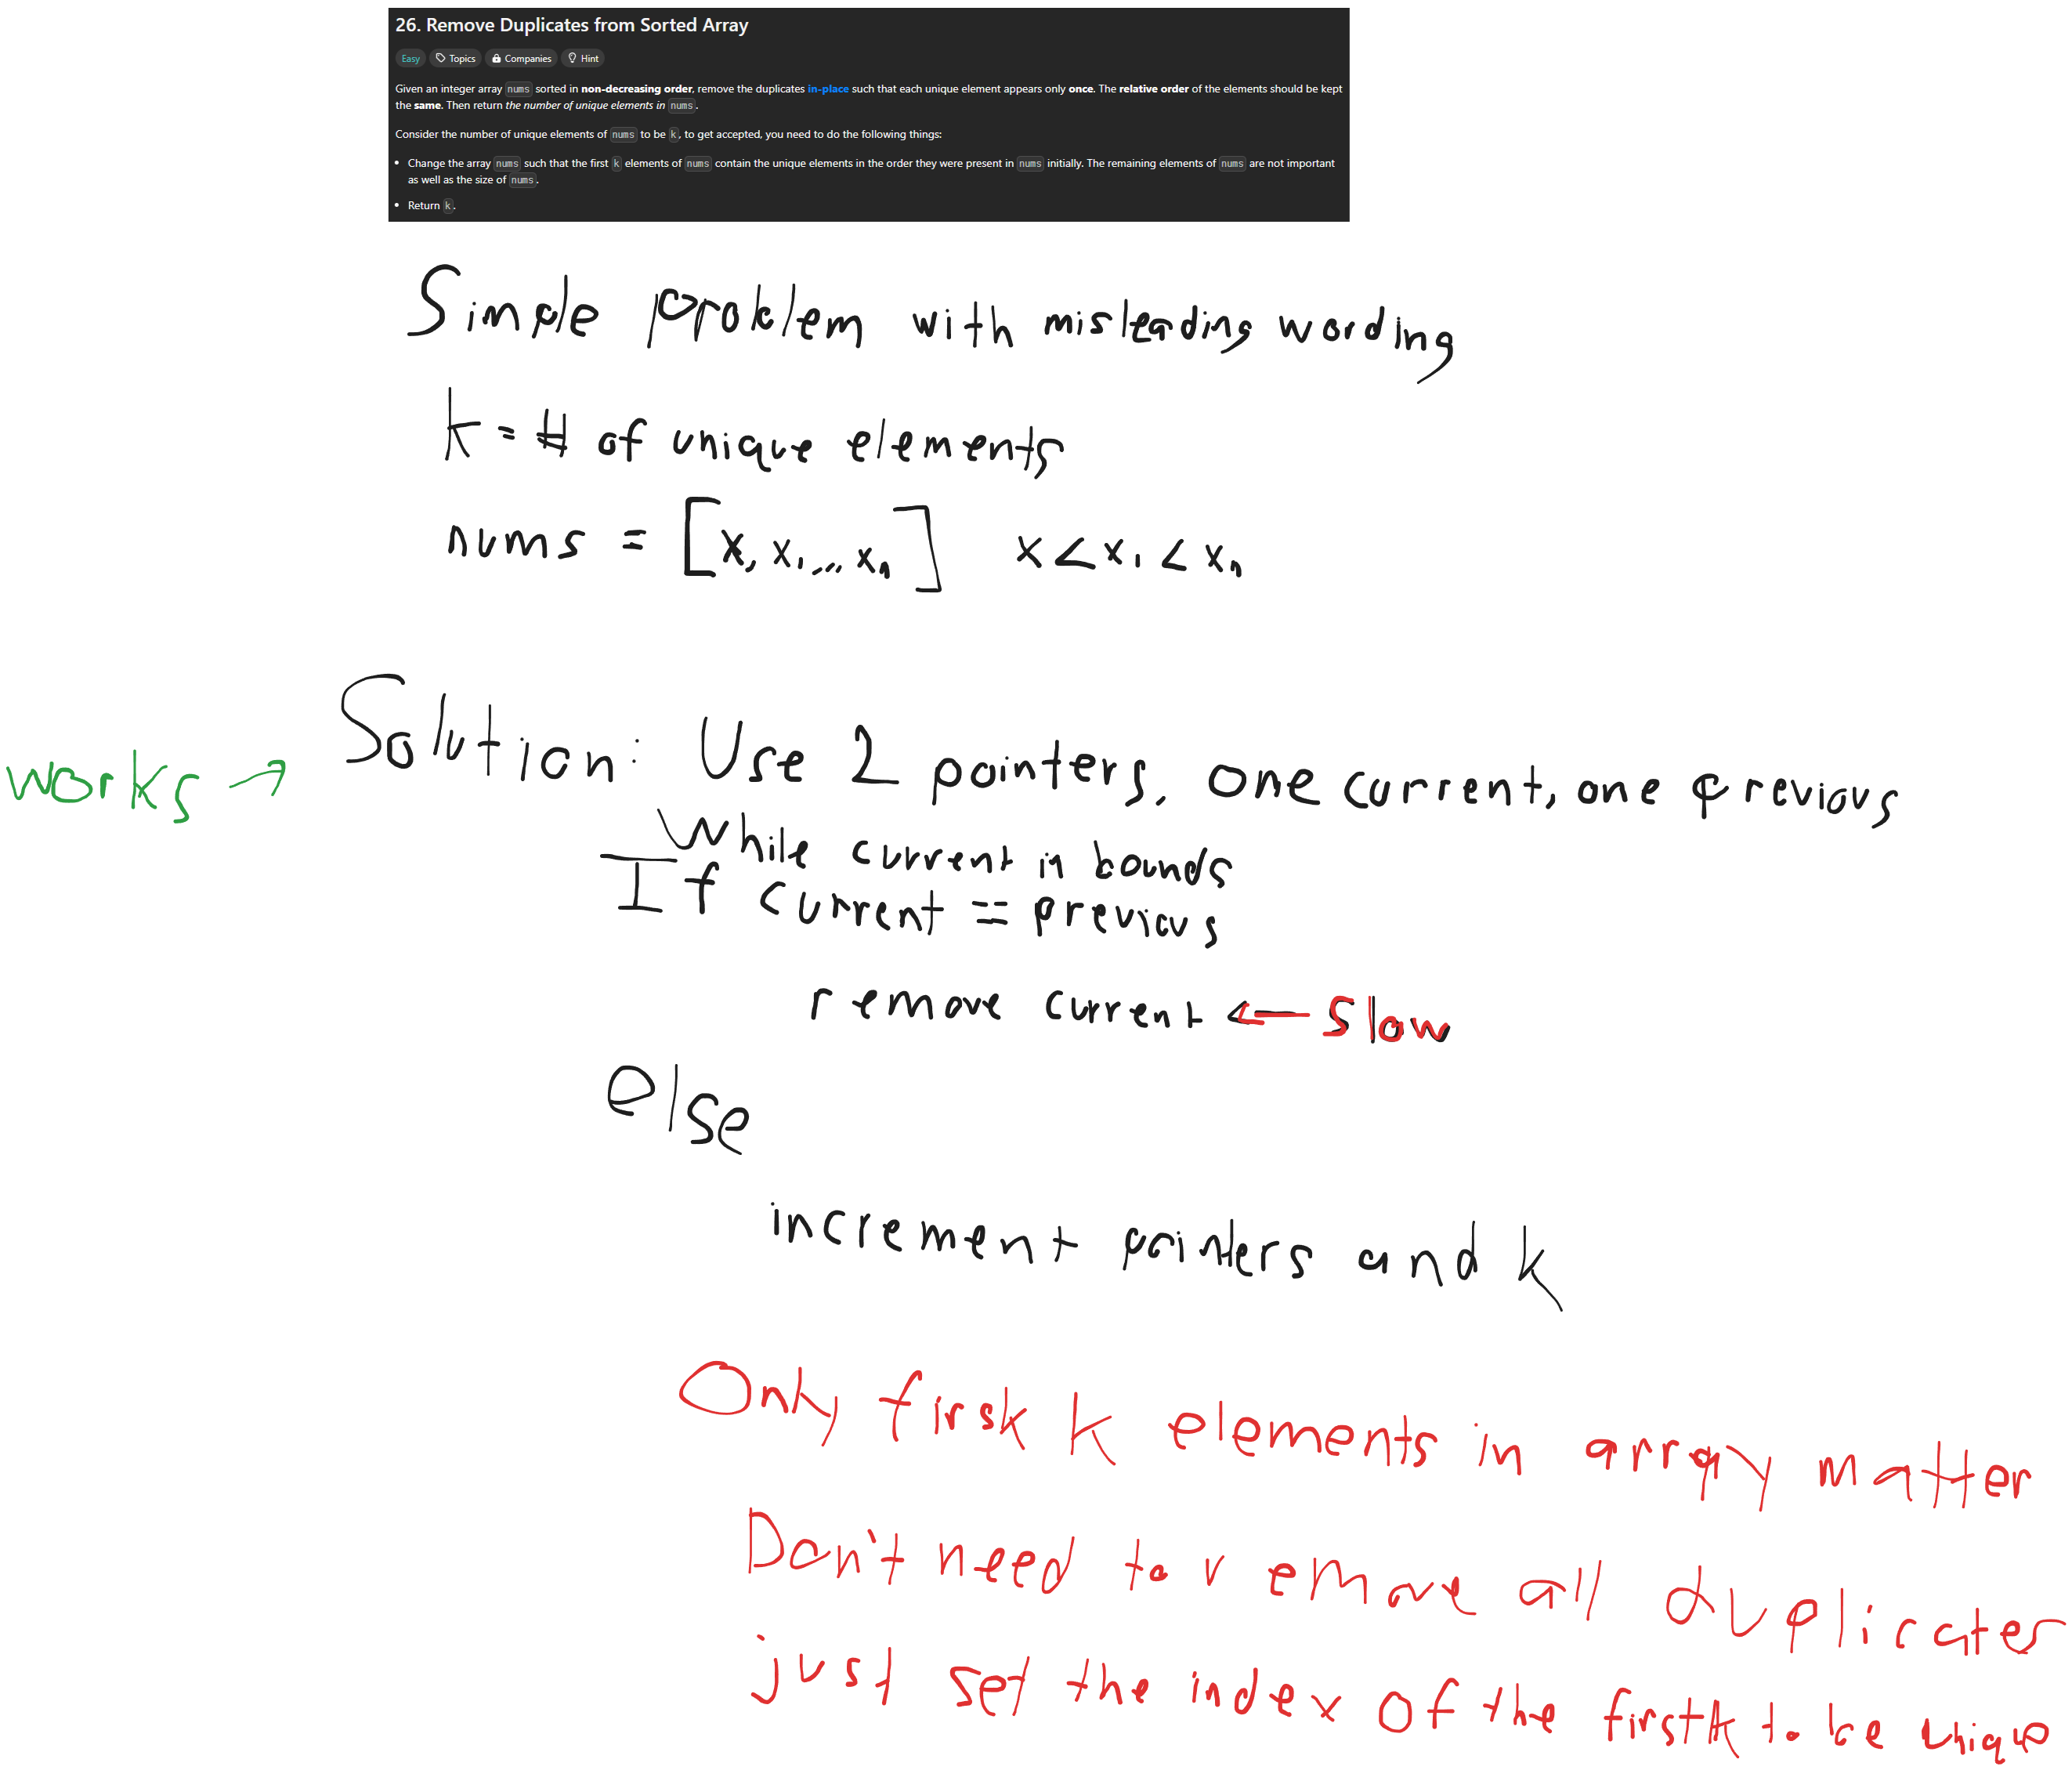 26. Remove Duplicates from Sorted Array
Easy Topics Companies Hint
Given an integer array nums sorted in non-decreasing order, remove the duplicates in-place such that each unique element appears only once. The relative order of the elements should be kept
the same. Then return the number of unique elements in nums.
Consider the number of unique elements of nums to be k, to get accepted, you need to do the following things:
• Change the array nums such that the first k elements of nums contain the unique elements in the order they were present in nums initially. The remaining elements of nums are not important
as well as the size of nums.
• Return k.
Simple problem with misleading wording
k = # of unique elements
nums = [x, x₁, ... xₙ] x < x₁ < xₙ
works → Solution: Use 2 pointers, one current, one previous
While current in bounds
If current == previous
remove current ← Slow
else
increment pointers and k
Only firsk k elements in array matter
Don't need to remove all duplicates
just set the index of the first k to be unique